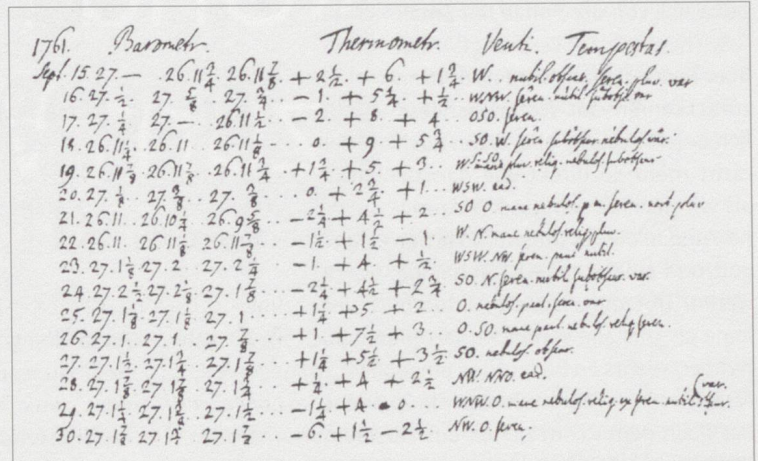 1761. Barometr. Thermometr. Venti. Tempestas.
Sept. 15. 27. — . 26.11 3/4. 26.11 7/8. + 2 1/2. + 6. + 1 3/4 W... nubil. obscur. seren. pluv. var
16. 27. 1/2. 27. 5/8. 27. 3/4 .. — 1. + 5 1/4 + 1/2 .. WNW. seren. nubil. subobscur
17. 27. 1/4. 27. — 26.11 1/2 ... — 2 + 8 + 4 .. OSO. seren.
18. 26.11 1/4. 26.11 26.11 1/8 ... 0. + 9 + 5 3/4 SO. W. seren subobscur nebulos. var.
19. 26.11 26.11 7/8. 26.11 3/4 + 1 3/4 + 5. + 3 .. W. SSO. mane pluv. reliq. nebulos. subobscur
20. 27. 1/8. 27. 3/8. 27. 3/8. ... 0. + 2 3/4 + 1 ... WSW. ead.
21. 26.11.. 26.10 1/4 26.9 5/8 — 2 1/4 + 4 1/2 + 2 ... SO O. mane nebulos. p.m. seren. noct. pluv
22. 26.11.. 26.11 26.11 7/8 .. — 1 1/2 + 1 1/2 — 1. W. N. mane nebulos. reliq. pluv.
23. 27. 1 1/8 27. 2 .. 27. 2 1/4 .. — 1. + 4 + 1/2. WSW. NW. seren. nubil.
24. 27. 2 1/2 27. 2 1/8 27. 1 7/8 .. — 2 1/4 + 4 1/2 + 2 3/4 SO. N. seren. nubil. subobscur. var.
25. 27. 1 1/8 . 27. 1 1/8 27. 1 ... + 1 1/4 + 5 + 2 ... O. nebulos. paul. seren.
26. 27. 1 . 27. 1 . 27. 7/8 .. + 1 + 7 1/2 + 3 .. O. SO. mane paul. nebulos. reliq. seren.
27. 27. 1 1/2. 27. 1 3/4 27. 1 7/8 .. + 1 1/4 + 5 1/2 + 3 1/2 SO. nebulos. obscur.
28. 27. 1 7/8 27. 1 7/8 27. 1 3/4 .. + 1/4 . + 4 + 2 1/2 NW. NNO. ead.
29. 27. 1 1/4. 27. 1 27. 1 1/2 .. — 1 1/4 + 4 0 ... WNW. O. mane nebulos. reliq. seren. nubil. obscur. var.
30. 27. 1 7/8 27. 1 27. 1 7/8 .. — 6. + 1 1/2 — 2 1/2. NW. O. seren.